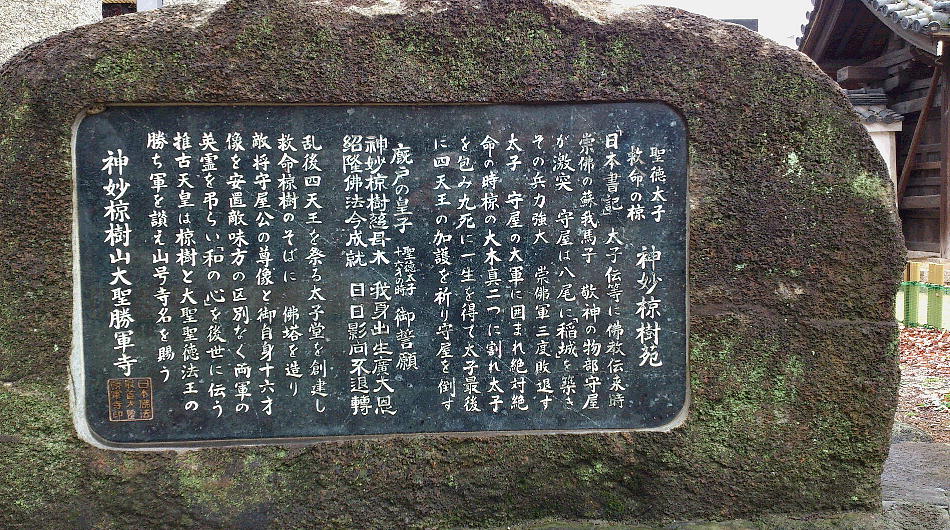 聖徳太子
救命の椋
神妙椋樹苑
「日本書記」 太子伝等に佛教伝来時
崇佛の蘇我馬子 敬神の物部守屋
が激突 守屋は八尾に稲城を築き
その兵力強大 崇佛軍三度敗退す
太子 守屋の大軍に囲まれ絶対絶
命の時椋の大木真二つに割れ太子
を包み九死に一生を得て太子最後
に四天王の加護を祈り守屋を倒す
廐戸の皇子 聖徳太子十六才の時 御誓願
神妙椋樹蔭毋木 我身出生廣大恩
紹隆佛法今成就 日日影向不退轉
乱後四天王を祭る太子堂を創建し
救命椋樹のそばに 佛塔を造り
敵将守屋公の尊像と御自身十六才
像を安置敵味方の区別なく両軍の
英霊を弔らい「和の心」を後世に伝う
推古天皇は椋樹と大聖聖徳法王の
勝ち軍を讃え山号寺名を賜う
神妙椋樹山大聖勝軍寺